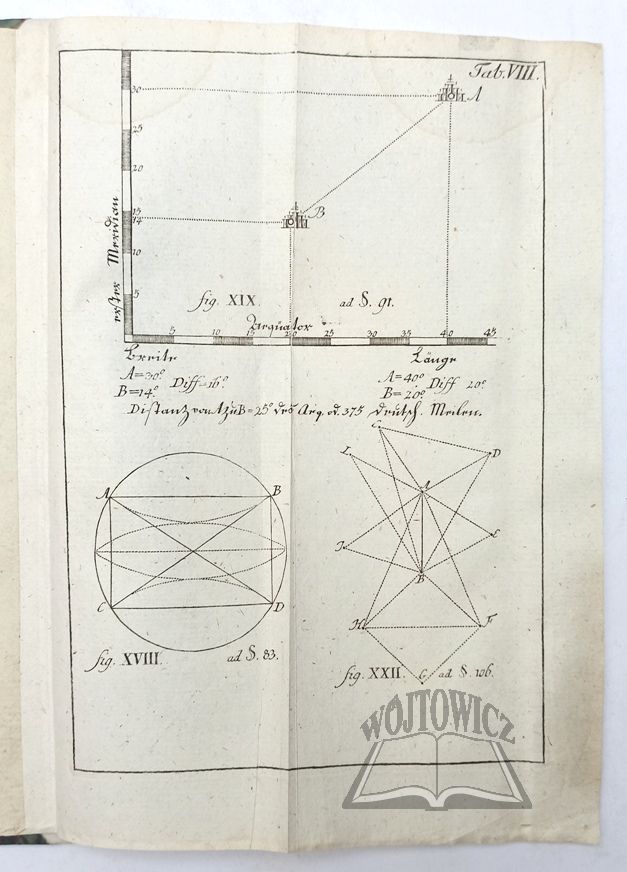 Tab. VIII.
30
A
25
20
15
14
B
10
erster Meridian
5
fig. XIX. ad §. 91.
Aequator
5 10 15 20 25 30 35 40 45
Breite Länge
A=30° Diff=16° A=40° Diff 20°
B=14° B=20°
Distanz von A zu B=25° des Aeq. od. 375 deutsch. Meilen.
C
L D
A B A
I E
B
C D H F
fig. XVIII. ad §. 83.
fig. XXII. G ad §. 106.
WÓJTOWICZ